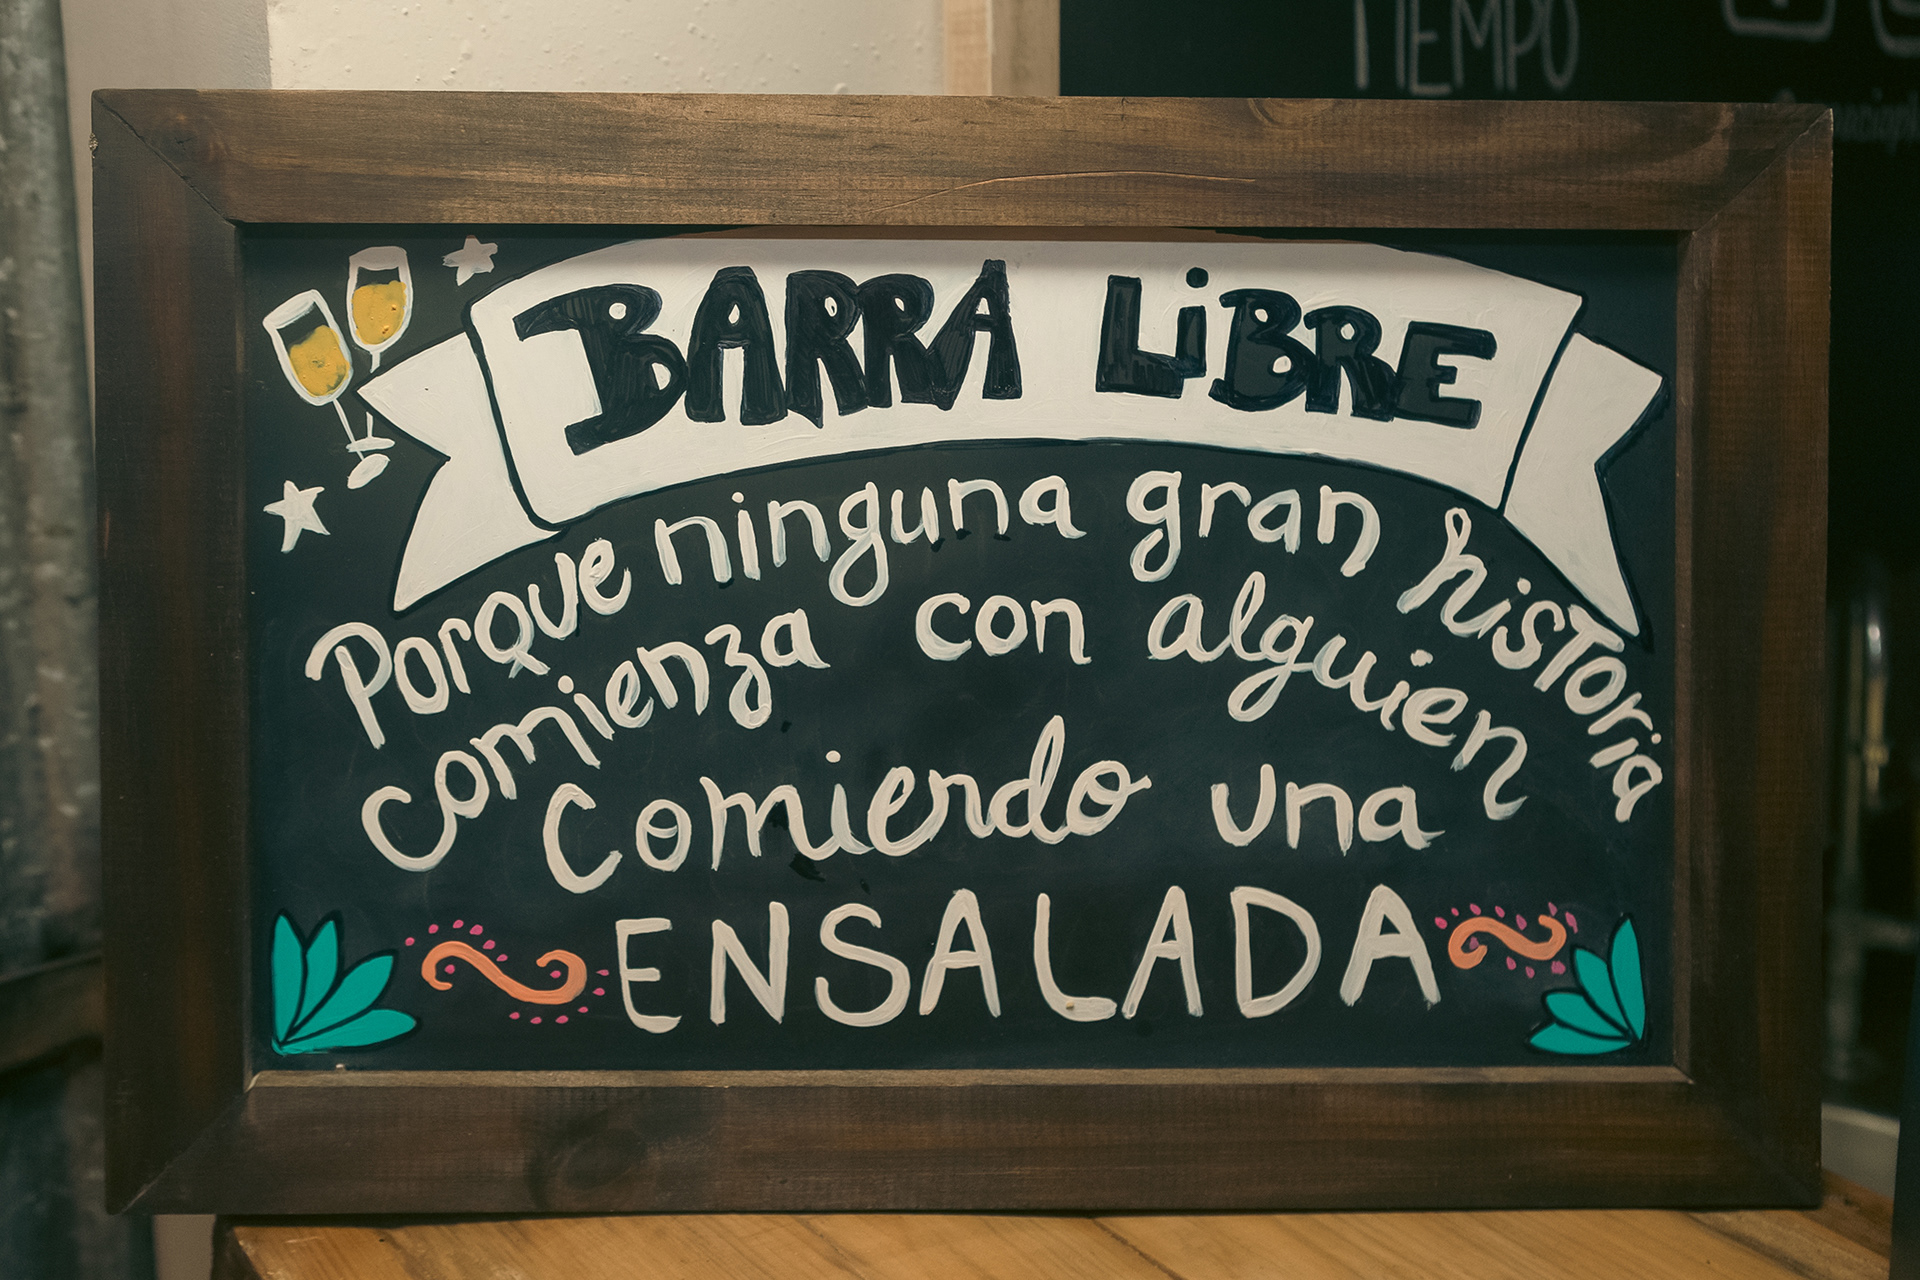 TIEMPO
BARRA LiBRE
Porque ninguna gran historia
comienza con alguien
Comiendo una
ENSALADA